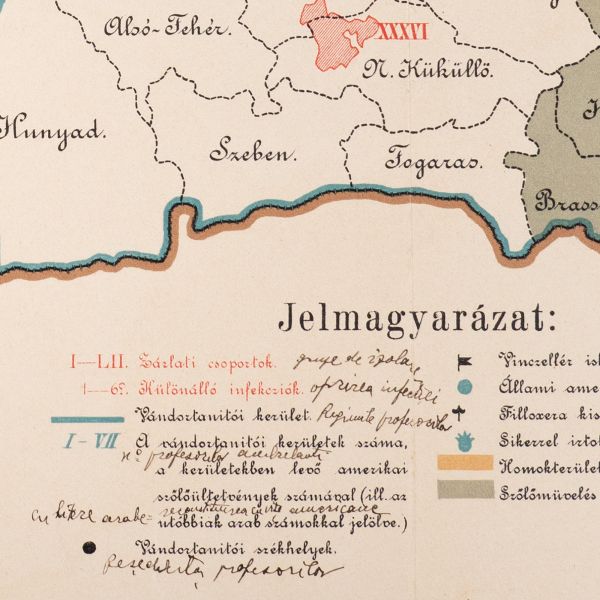 Alsó-Fehér.
XXXVI
N. Küküllő.
Hunyad.
Szeben.
Fogaras.
Brass
Jelmagyarázat:
I—LII. Zárlati csoportok. grupe de izolare
1—6. Különálló infekcziók. oprirea infecției
Vándortanitói kerület. Regiunile profesorilor
I-VII A vándortanitói kerületek száma,
No profesorilor ambulanti
a kerületekben levő amerikai
szőlőültetvények számával (ill. az
cu litere arabe = reconstituirea cu vite americane
utóbbiak arab számokkal jelölve.)
Vándortanitói székhelyek.
profesorilor
Vinczellér is
Állami ame
Filloxera kis
Sikerrel irtot
Homokterület
Szőlőmüvelés